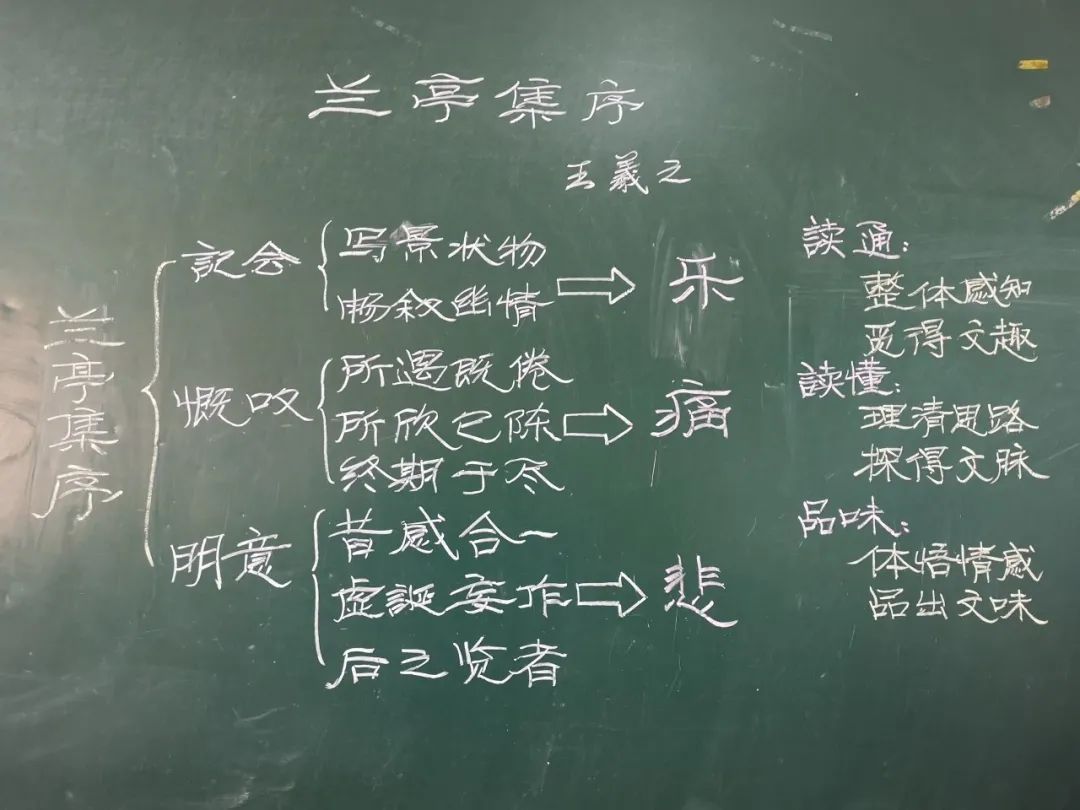 兰亭集序
王羲之
兰亭集序
記会
写景状物
畅叙幽情
乐
慨叹
所遇既倦
所欣已陈
终期于尽
痛
明意
昔感合一
虚誕妄作
后之览者
悲
読通：
整体感知
觅得文趣
读懂：
理清思路
探得文脉
品味：
体悟情感
品出文味